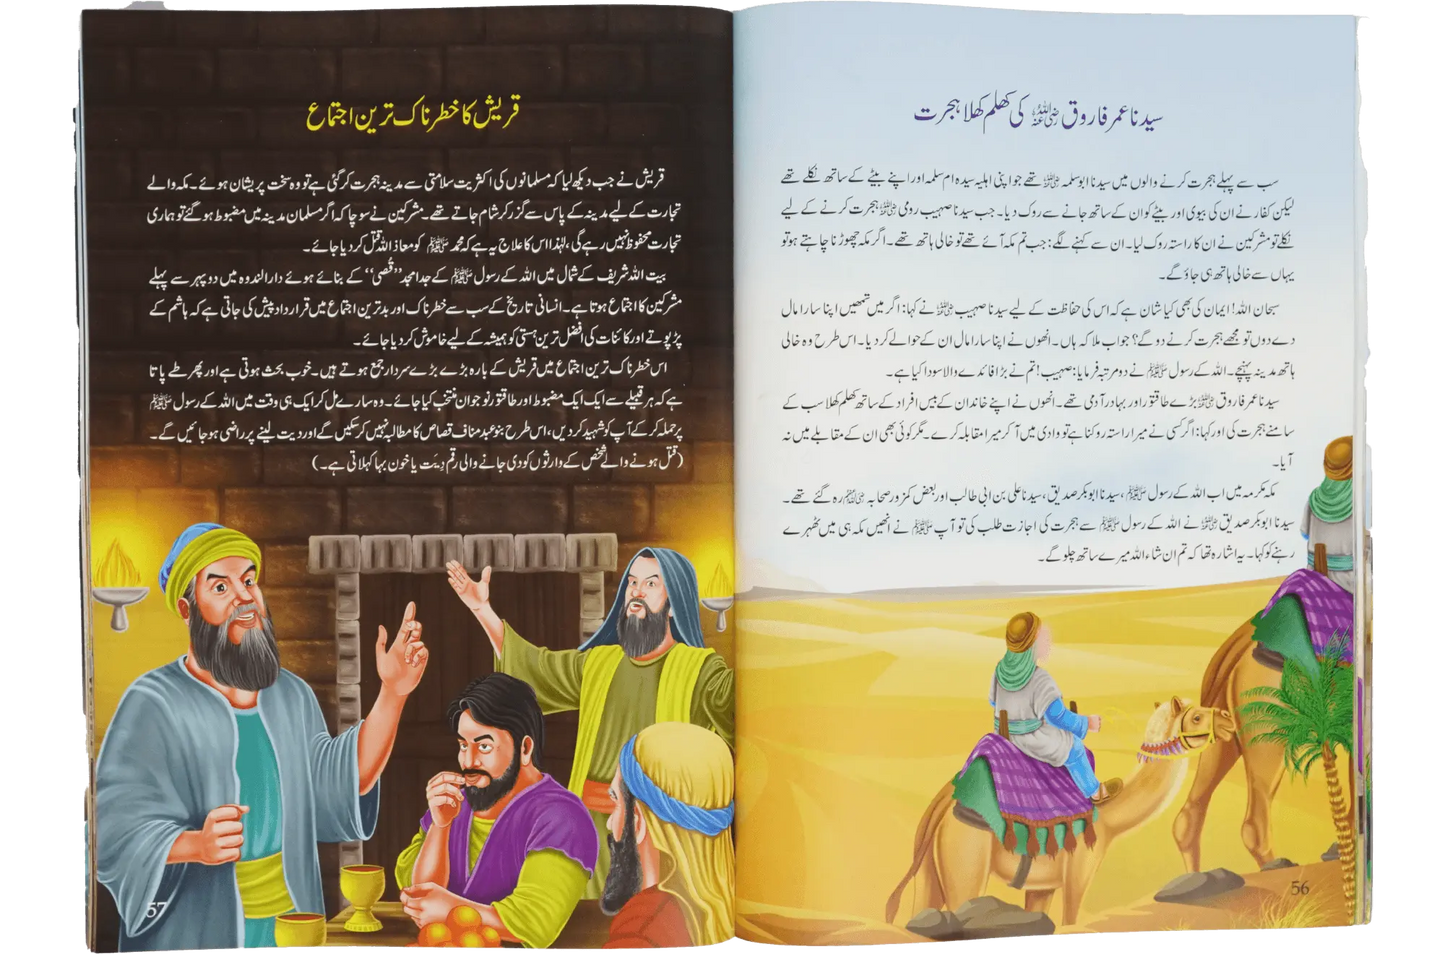 سیدنا عمر فاروق رضی اللہ عنہ کی کھلم کھلا ہجرت
سب سے پہلے ہجرت کرنے والوں میں سیدنا ابوسلمہ رضی اللہ عنہ تھے جو اپنی اہلیہ سیدہ ام سلمہ اور اپنے بیٹے کے ساتھ نکلے تھے
لیکن کفار نے ان کی بیوی اور بیٹے کو ان کے ساتھ جانے سے روک دیا۔ جب سیدنا صہیب رومی رضی اللہ عنہ ہجرت کرنے کے لیے
نکلے تو مشرکین نے ان کا راستہ روک لیا۔ ان سے کہنے لگے: جب تم مکہ آئے تھے تو خالی ہاتھ تھے۔ اگر مکہ چھوڑنا چاہتے ہو تو
یہاں سے خالی ہاتھ ہی جاؤ گے۔
سبحان اللہ! ایمان کی بھی کیا شان ہے کہ اس کی حفاظت کے لیے سیدنا صہیب رضی اللہ عنہ نے کہا: اگر میں تمھیں اپنا سارا مال
دے دوں تو مجھے ہجرت کرنے دو گے؟ جواب ملا کہ ہاں۔ انھوں نے اپنا سارا مال ان کے حوالے کر دیا۔ اس طرح وہ خالی
ہاتھ مدینہ پہنچے۔ اللہ کے رسول ﷺ نے دو مرتبہ فرمایا: صہیب! تم نے بڑا فائدے والا سودا کیا ہے۔
سیدنا عمر فاروق رضی اللہ عنہ بڑے طاقتور اور بہادر آدمی تھے۔ انھوں نے اپنے خاندان کے بیس افراد کے ساتھ کھلم کھلا سب کے
سامنے ہجرت کی اور کہا: اگر کسی نے میرا راستہ روکنا ہے تو وادی میں آ کر میرا مقابلہ کرے۔ مگر کوئی بھی ان کے مقابلے میں نہ
آیا۔
مکہ مکرمہ میں اب اللہ کے رسول ﷺ، سیدنا ابوبکر صدیق، سیدنا علی بن ابی طالب اور بعض کمزور صحابہ رہ گئے تھے۔
سیدنا ابوبکر صدیق رضی اللہ عنہ نے اللہ کے رسول ﷺ سے ہجرت کی اجازت طلب کی تو آپ ﷺ نے انھیں مکہ ہی میں ٹھہرے
رہنے کو کہا۔ یہ اشارہ تھا کہ تم ان شاء اللہ میرے ساتھ چلو گے۔
56
قریش کا خطرناک ترین اجتماع
قریش نے جب دیکھ لیا کہ مسلمانوں کی اکثریت سلامتی سے مدینہ ہجرت کر گئی ہے تو وہ سخت پریشان ہوئے۔ مکہ والے
تجارت کے لیے مدینہ کے پاس سے گزر کر شام جاتے تھے۔ مشرکین نے سوچا کہ اگر مسلمان مدینہ میں مضبوط ہو گئے تو ہماری
تجارت محفوظ نہیں رہے گی، لہٰذا اس کا علاج یہ ہے کہ محمد ﷺ کو معاذ اللہ قتل کر دیا جائے۔
بیت اللہ شریف کے شمال میں اللہ کے رسول ﷺ کے جد امجد ’’قُصی‘‘ کے بنائے ہوئے دار الندوہ میں دوپہر سے پہلے
مشرکین کا اجتماع ہوتا ہے۔ انسانی تاریخ کے سب سے خطرناک اور بدترین اجتماع میں قرارداد پیش کی جاتی ہے کہ ہاشم کے
پڑپوتے اور کائنات کی افضل ترین ہستی کو ہمیشہ کے لیے خاموش کر دیا جائے۔
اس خطرناک ترین اجتماع میں قریش کے بارہ بڑے بڑے سردار جمع ہوتے ہیں۔ خوب بحث ہوتی ہے اور پھر طے پاتا
ہے کہ ہر قبیلے سے ایک ایک مضبوط اور طاقتور نوجوان منتخب کیا جائے۔ وہ سارے مل کر ایک ہی وقت میں اللہ کے رسول ﷺ
پر حملہ کر کے آپ کو شہید کر دیں، اس طرح بنو عبد مناف قصاص کا مطالبہ نہیں کر سکیں گے اور دیت لینے پر راضی ہو جائیں گے۔
(قتل ہونے والے شخص کے وارثوں کو دی جانے والی رقم دِیَت یا خون بہا کہلاتی ہے۔)
57